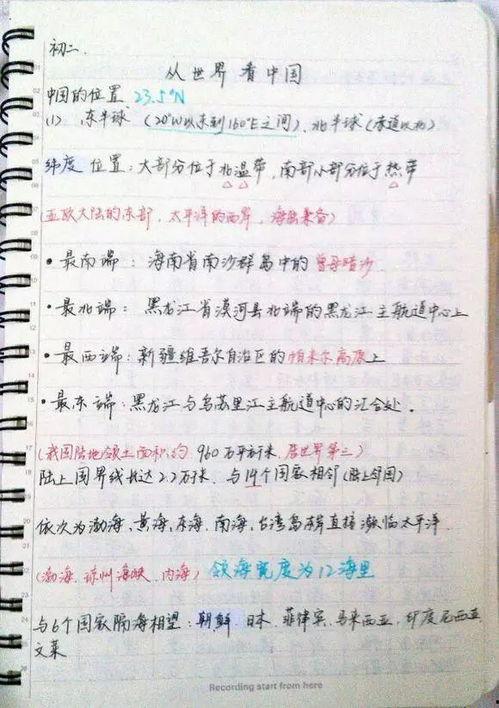 初二.
从世界看中国
中国的位置 23.5°N
(1) 东半球 (20°W以东到160°E之间)、北半球(赤道以北)
纬度位置:大部分位于北温带,南部小部分位于热带
(亚欧大陆的东部,太平洋的西岸,海陆兼备)
• 最南端:海南省南沙群岛中的曾母暗沙.
• 最北端:黑龙江省漠河县北端的黑龙江主航道中心上
• 最西端:新疆维吾尔自治区的帕米尔高原上
• 最东端:黑龙江与乌苏里江主航道中心的汇合处.
(我国陆地领土面积约960万平方千米,居世界第三)
陆上国界线长达2.2万千米,与14个国家相邻(陆上邻国)
依次为渤海、黄海、东海、南海,台湾岛东岸直接濒临太平洋.
(渤海、琼州海峡、内海) 领海宽度为12海里
与6个国家隔海相望:朝鲜、日本、菲律宾、马来西亚、印度尼西亚
文莱
Recording start from here